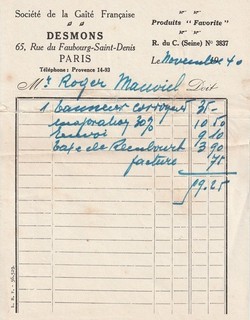 Société de la Gaîté Française
DESMONS
65, Rue du Faubourg-Saint-Denis
PARIS
Téléphone : Provence 14-93
Produits "Favorite"
R. du C. (Seine) N° 3837
Le Novembre 40
M Roger Mauviel Doit
1 35 -
majoration 30% 10.50
Envoi 9.10
Taxe de Rembourt 3.90
facture .75
59.25